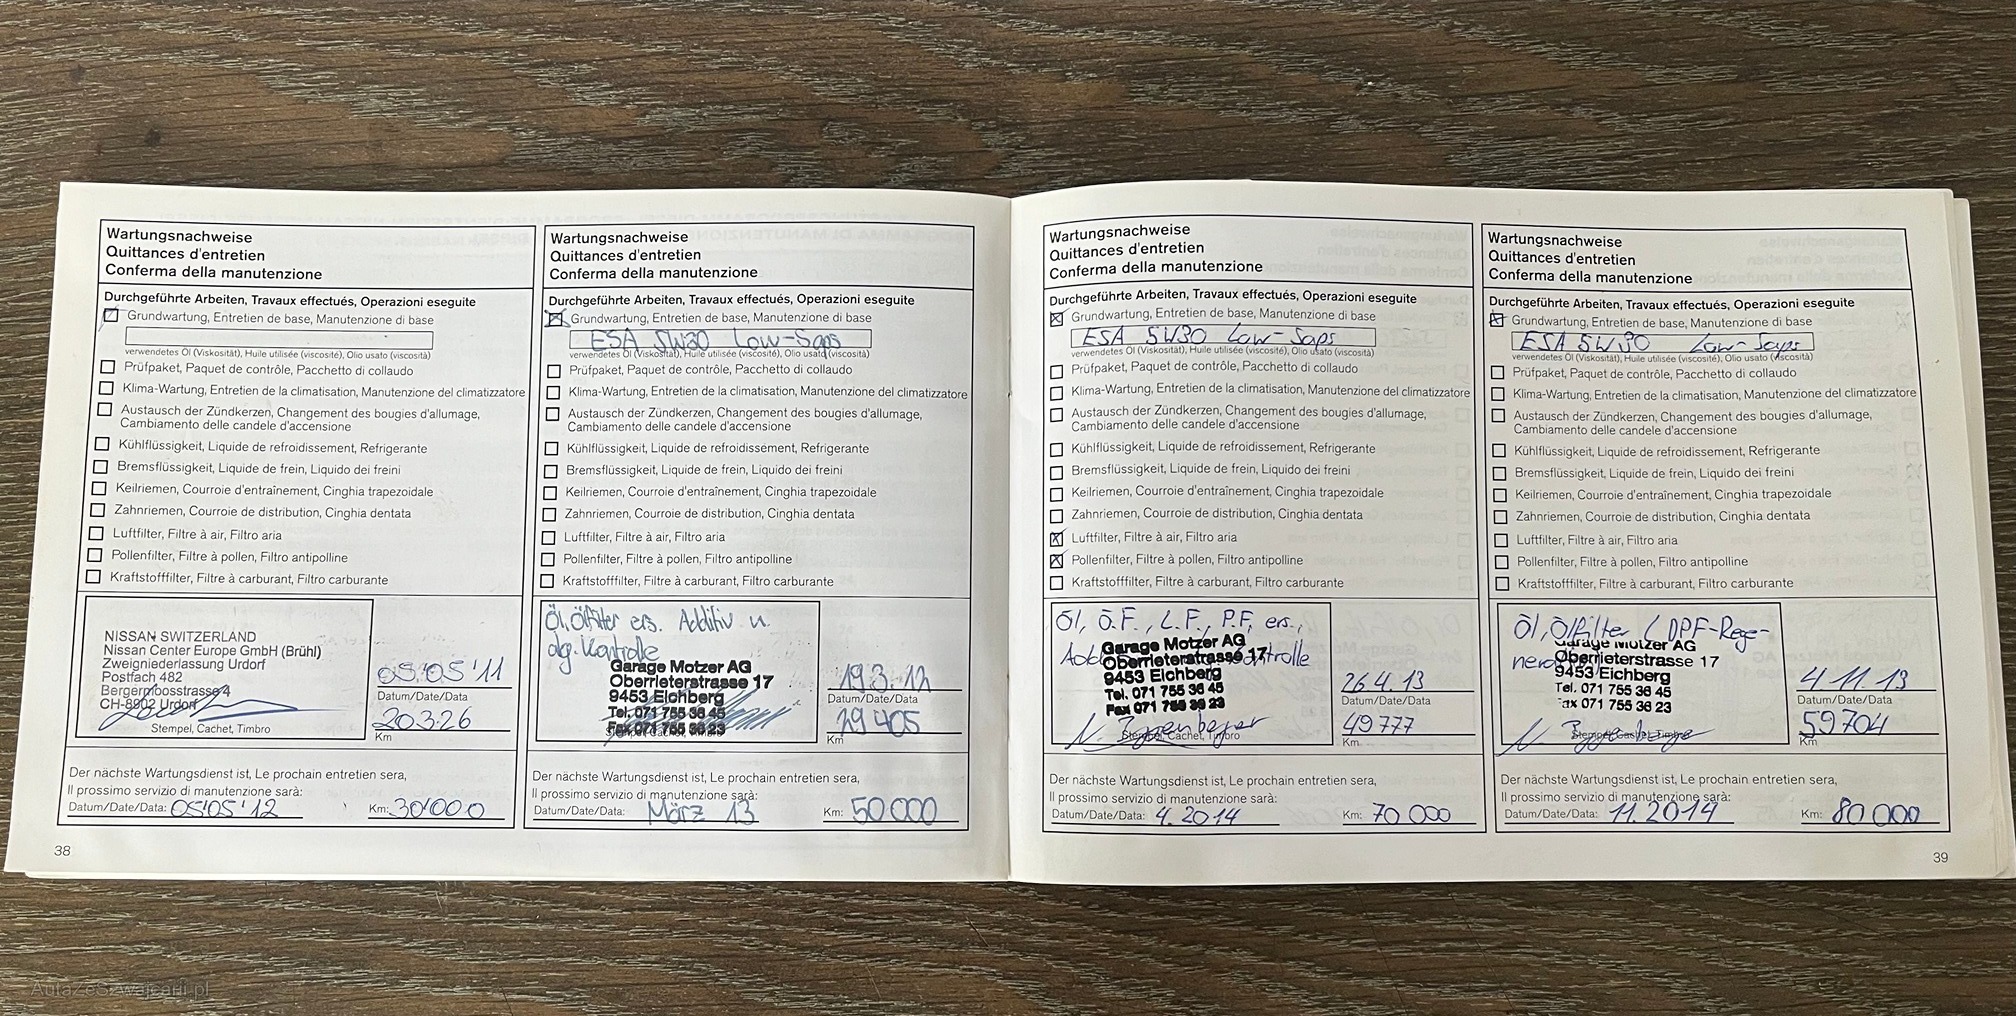 Wartungsnachweise
Quittances d'entretien
Conferma della manutenzione
Durchgeführte Arbeiten, Travaux effectués, Operazioni eseguite
Grundwartung, Entretien de base, Manutenzione di base
verwendetes Öl (Viskosität), Huile utilisée (viscosité), Olio usato (viscosità)
Prüfpaket, Paquet de contrôle, Pacchetto di collaudo
Klima-Wartung, Entretien de la climatisation, Manutenzione del climatizzatore
Austausch der Zündkerzen, Changement des bougies d'allumage,
Cambiamento delle candele d'accensione
Kühlflüssigkeit, Liquide de refroidissement, Refrigerante
Bremsflüssigkeit, Liquide de frein, Liquido dei freini
Keilriemen, Courroie d'entraînement, Cinghia trapezoidale
Zahnriemen, Courroie de distribution, Cinghia dentata
Luftfilter, Filtre à air, Filtro aria
Pollenfilter, Filtre à pollen, Filtro antipolline
Kraftstofffilter, Filtre à carburant, Filtro carburante
NISSAN SWITZERLAND
Nissan Center Europe GmbH (Brühl)
Zweigniederlassung Urdorf
Postfach 482
Bergermoosstrasse 4
CH-8902 Urdorf
Stempel, Cachet, Timbro
05'05'11
Datum/Date/Data
20326
Km
Der nächste Wartungsdienst ist, Le prochain entretien sera,
Il prossimo servizio di manutenzione sarà:
Datum/Date/Data: 05'05'12 Km: 30'000
38
Wartungsnachweise
Quittances d'entretien
Conferma della manutenzione
Durchgeführte Arbeiten, Travaux effectués, Operazioni eseguite
Grundwartung, Entretien de base, Manutenzione di base
ESA 5W30 Low-Saps
verwendetes Öl (Viskosität), Huile utilisée (viscosité), Olio usato (viscosità)
Prüfpaket, Paquet de contrôle, Pacchetto di collaudo
Klima-Wartung, Entretien de la climatisation, Manutenzione del climatizzatore
Austausch der Zündkerzen, Changement des bougies d'allumage,
Cambiamento delle candele d'accensione
Kühlflüssigkeit, Liquide de refroidissement, Refrigerante
Bremsflüssigkeit, Liquide de frein, Liquido dei freini
Keilriemen, Courroie d'entraînement, Cinghia trapezoidale
Zahnriemen, Courroie de distribution, Cinghia dentata
Luftfilter, Filtre à air, Filtro aria
Pollenfilter, Filtre à pollen, Filtro antipolline
Kraftstofffilter, Filtre à carburant, Filtro carburante
Öl, Ölfilter ers. Additiv u.
allg. Kontrolle
Garage Motzer AG
Oberrieterstrasse 17
9453 Eichberg
Tel. 071 755 36 45
Fax 071 755 36 23
Stempel, Cachet, Timbro
19.3.12
Datum/Date/Data
29405
Km
Der nächste Wartungsdienst ist, Le prochain entretien sera,
Il prossimo servizio di manutenzione sarà:
Datum/Date/Data: März 13 Km: 50000
Wartungsnachweise
Quittances d'entretien
Conferma della manutenzione
Durchgeführte Arbeiten, Travaux effectués, Operazioni eseguite
Grundwartung, Entretien de base, Manutenzione di base
ESA 5W30 Low-Saps
verwendetes Öl (Viskosität), Huile utilisée (viscosité), Olio usato (viscosità)
Prüfpaket, Paquet de contrôle, Pacchetto di collaudo
Klima-Wartung, Entretien de la climatisation, Manutenzione del climatizzatore
Austausch der Zündkerzen, Changement des bougies d'allumage,
Cambiamento delle candele d'accensione
Kühlflüssigkeit, Liquide de refroidissement, Refrigerante
Bremsflüssigkeit, Liquide de frein, Liquido dei freini
Keilriemen, Courroie d'entraînement, Cinghia trapezoidale
Zahnriemen, Courroie de distribution, Cinghia dentata
Luftfilter, Filtre à air, Filtro aria
Pollenfilter, Filtre à pollen, Filtro antipolline
Kraftstofffilter, Filtre à carburant, Filtro carburante
Öl, Ö.F., L.F., P.F. ers.,
Garage Motzer AG
Oberrieterstrasse 17
9453 Eichberg
Tel. 071 755 36 45
Fax 071 755 36 23
Stempel, Cachet, Timbro
26.4.13
Datum/Date/Data
49777
Km
Der nächste Wartungsdienst ist, Le prochain entretien sera,
Il prossimo servizio di manutenzione sarà:
Datum/Date/Data: 4.2014 Km: 70 000
Wartungsnachweise
Quittances d'entretien
Conferma della manutenzione
Durchgeführte Arbeiten, Travaux effectués, Operazioni eseguite
Grundwartung, Entretien de base, Manutenzione di base
ESA 5W30 Low-Saps
verwendetes Öl (Viskosität), Huile utilisée (viscosité), Olio usato (viscosità)
Prüfpaket, Paquet de contrôle, Pacchetto di collaudo
Klima-Wartung, Entretien de la climatisation, Manutenzione del climatizzatore
Austausch der Zündkerzen, Changement des bougies d'allumage,
Cambiamento delle candele d'accensione
Kühlflüssigkeit, Liquide de refroidissement, Refrigerante
Bremsflüssigkeit, Liquide de frein, Liquido dei freini
Keilriemen, Courroie d'entraînement, Cinghia trapezoidale
Zahnriemen, Courroie de distribution, Cinghia dentata
Luftfilter, Filtre à air, Filtro aria
Pollenfilter, Filtre à pollen, Filtro antipolline
Kraftstofffilter, Filtre à carburant, Filtro carburante
Öl, Ölfilter, DPF-Rege-
Garage Motzer AG
Oberrieterstrasse 17
9453 Eichberg
Tel. 071 755 36 45
Fax 071 755 36 23
Stempel, Cachet, Timbro
4.11.13
Datum/Date/Data
59704
Km
Der nächste Wartungsdienst ist, Le prochain entretien sera,
Il prossimo servizio di manutenzione sarà:
Datum/Date/Data: 11.2014 Km: 80 000
39
AutaZeSzwajcarii.pl